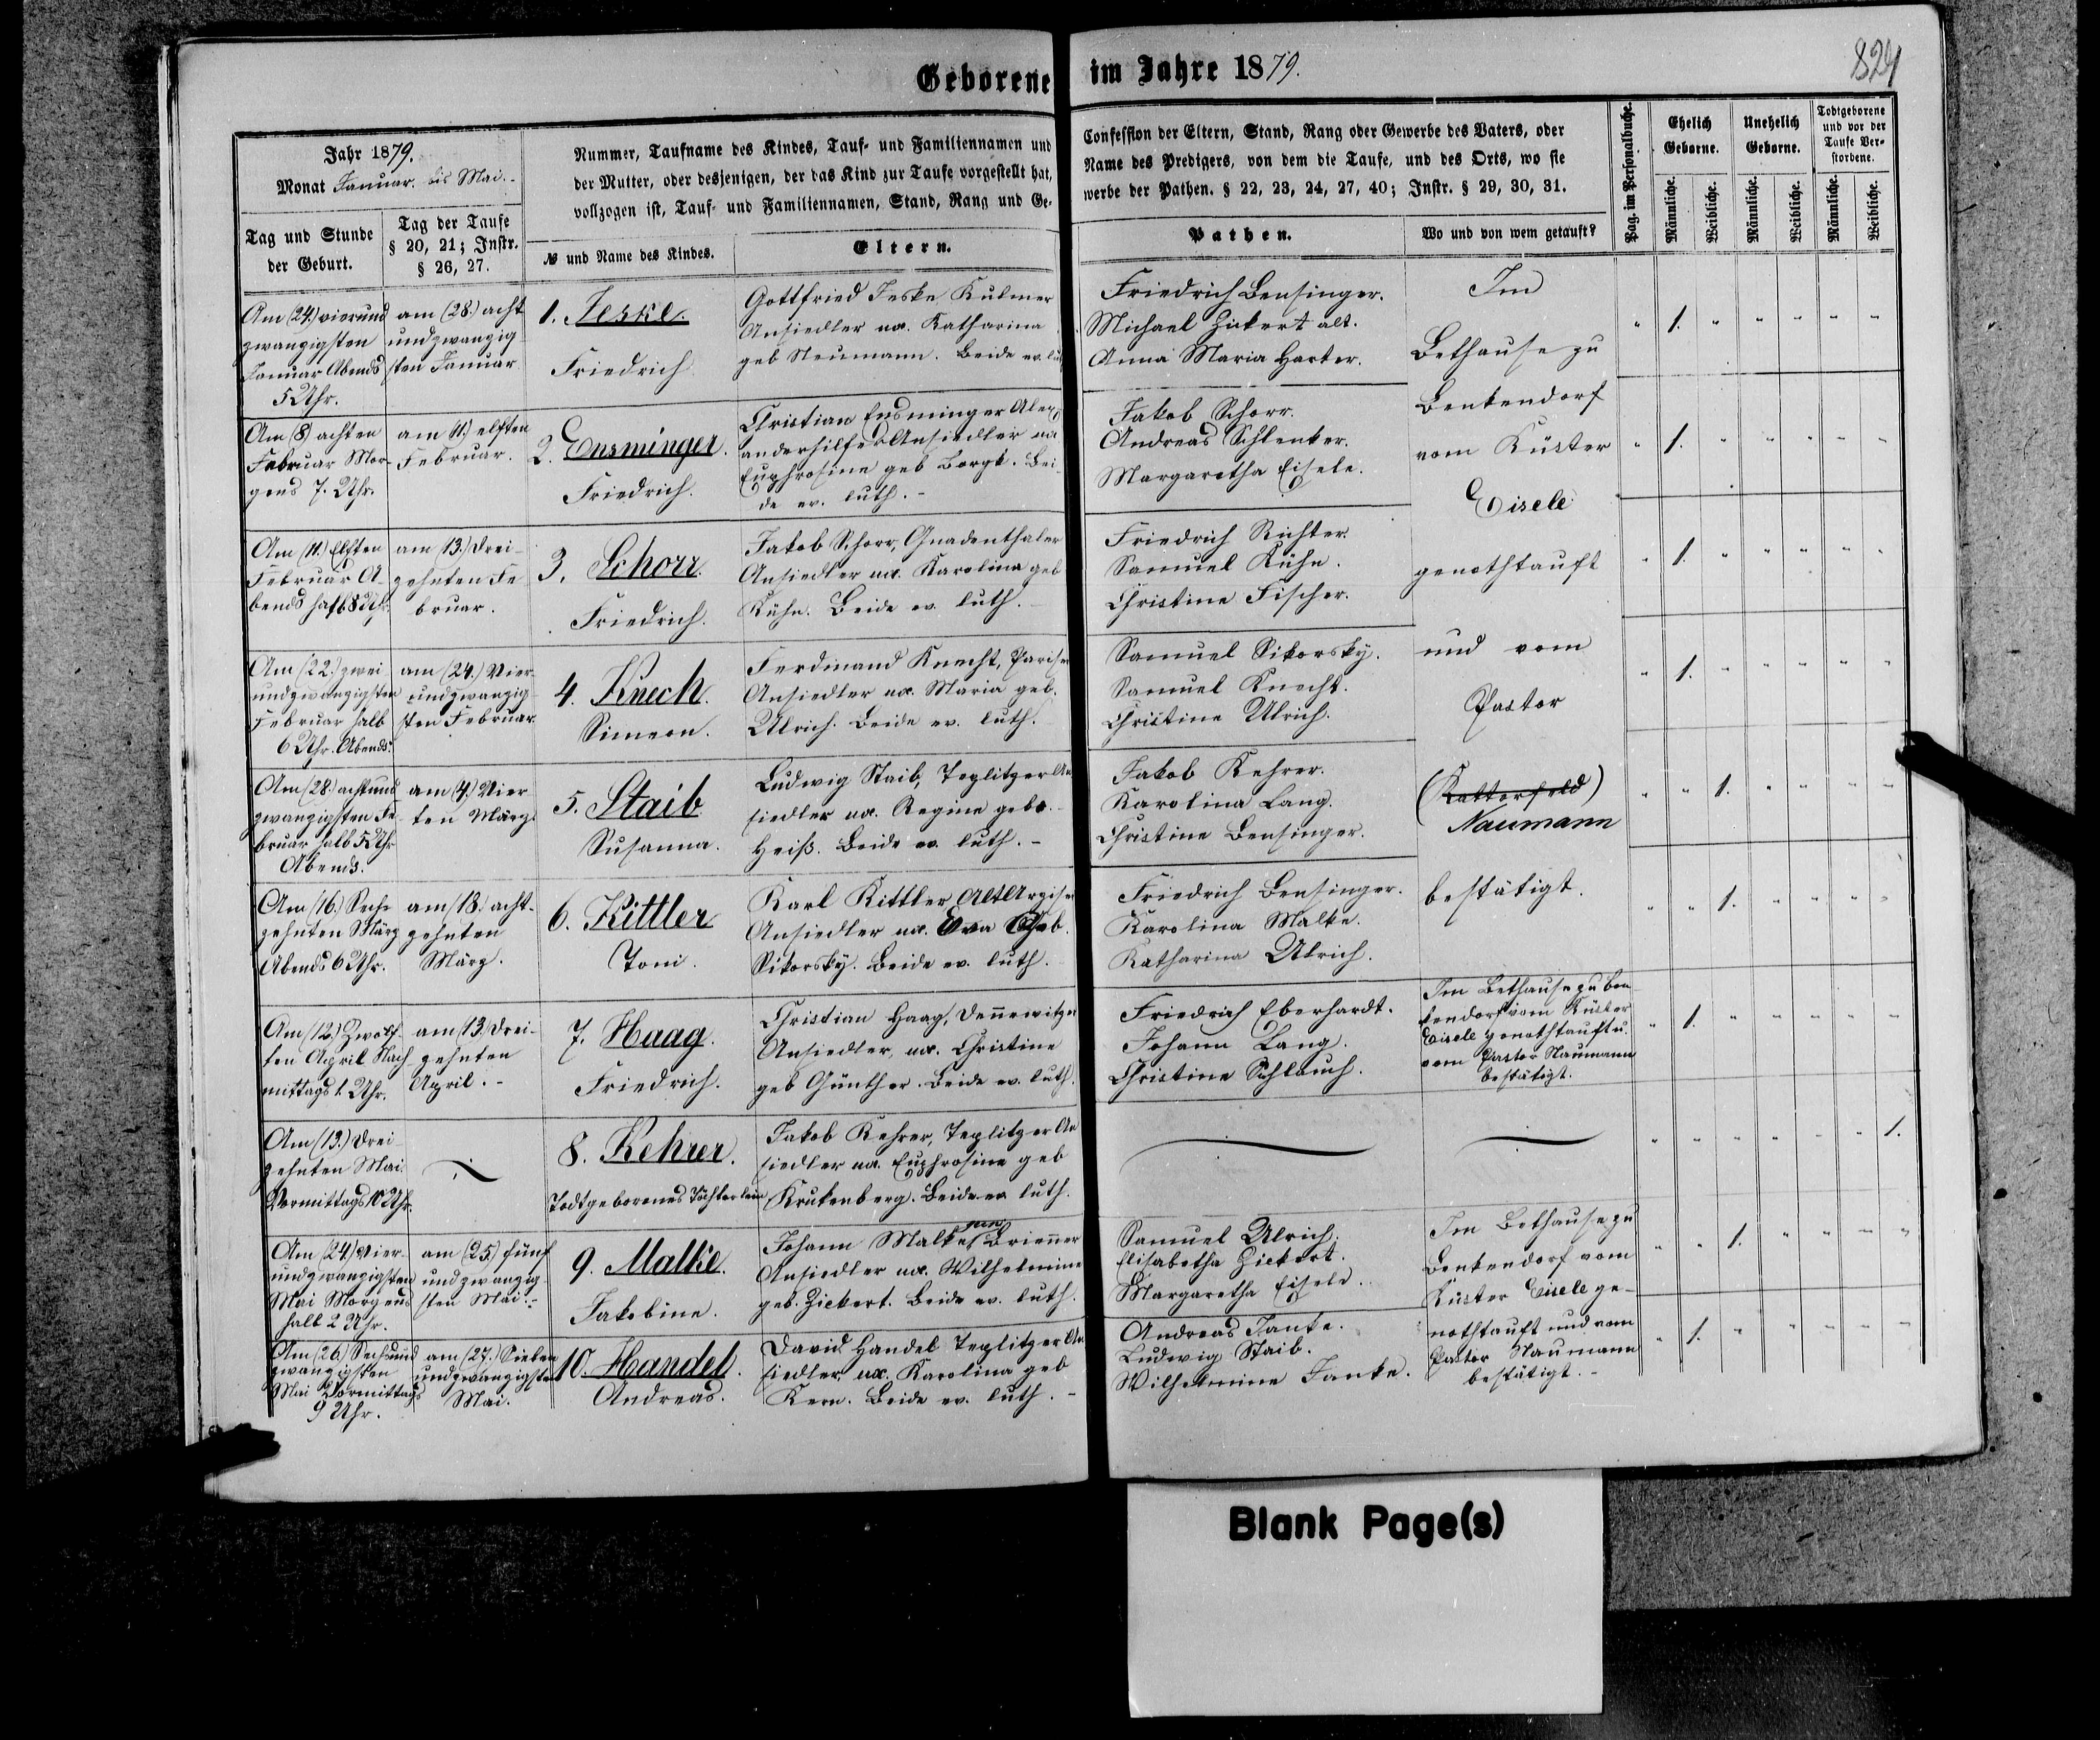 Geborene im Jahre 1879.
824
Jahr 1879.
Monat Januar. bis Mai.-
Tag und Stunde
der Geburt.
Tag der Taufe
§ 20, 21; Instr.
§ 26, 27.
Nummer, Taufname des Kindes, Tauf- und Familiennamen und
der Mutter, oder desjenigen, der das Kind zur Taufe vorgestellt hat,
vollzogen ist, Tauf- und Familiennamen, Stand, Rang und Ge-
№ und Name des Kindes.
Eltern.
Confession der Eltern, Stand, Rang oder Gewerbe des Vaters, oder
Name des Predigers, von dem die Taufe, und des Orts, wo sie
werbe der Pathen. § 22, 23, 24, 27, 40; Instr. § 29, 30, 31.
Pathen.
Wo und von wem getauft?
Pag. im Personalbuche.
Ehelich
Geborne.
Unehelich
Geborne.
Todtgeborene
und vor der
Taufe Ver-
storbene.
Männliche.
Weibliche.
Männliche.
Weibliche.
Männliche.
Weibliche.
Am (24.) vierund
zwanzigsten
Januar Abends
5 Uhr.
am (28.) acht
undzwanzig
sten Januar
1. Jeske.
Friedrich
Gottfried Jeske, Kulmer
Ansiedler ux. Katharina
geb Neumann. Beide ev. lu
Friedrich Bensinger.
Michael Zickert alt.
Anna Maria Harter.
" 1. " " " " "
Am (8) achten
Februar Mor-
gens 7. Uhr.
am (11.) elften
Februar.
2. Ensminger.
Friedrich.
Christian Ensminger Alex
anderhilfer Ansiedler ux
Euphrosine geb Borgk. Bei-
de ev. luth.-
Jakob Schorr.
Andreas Schlenker.
Margaretha Eisele.
" 1. " " " " "
Am (11.) Elften
Februar A-
bends halb 8 Uhr.
am (13.) Drei-
zehnten Fe
bruar.
3. Schorr.
Friedrich.
Jakob Schorr, Gnadenthaler
Ansiedler ux. Karolina geb
Kühn. Beide ev. luth.
Friedrich Richter.
Samuel Kühn.
Christine Fischer.
" 1. " " " " "
Am (22.) zwei
undzwanzigsten
Februar halb
6 Uhr. Abends.
am (24.) Vier
undzwanzig
sten Februar.
4. Knech.
Simeon.
Ferdinand Knecht, Pariser
Ansiedler ux. Maria geb.
Ulrich. Beide ev. luth.
Samuel Sikorsky.
Samuel Knecht.
Christine Ulrich.
" 1. " " " " "
Am (28.) achtund
zwanzigsten Fe
bruar halb 5 Uhr
Abends.
am (4.) Vier
ten März.
5. Staib
Susanna.
Ludwig Staib, Teplitzer An
siedler ux. Regine geb.
Heiß. Beide ev. luth.-
Jakob Kehrer.
Karolina Lang.
Christine Bensinger.
" " 1. " " " "
Am (16.) Sech
zehnten März
Abends 6 Uhr.
am (18.) acht-
zehnten
März.
6. Kittler
Toni.
Karl Kittler, Alt Arziser
Ansiedler ux. Eva Geb.
Sikorsky. Beide ev. luth.
Friedrich Bensinger.
Karolina Malke.
Katharina Ulrich.
Im
Bethause zu
Benkendorf
vom Küster
Eisele
genothtauft
und vom
Pastor
(Kattarfeld)
Naumann
bestätigt.
" " 1. " " " "
Am (12.) Zwölf-
ten April Nach
mittags 1. Uhr.
am (13.) Drei-
zehnten
April.-
7. Haag.
Friedrich.
Christian Haag, Dennewitzer
Ansiedler, ux. Christine
geb Günther. Beide ev. luth.
Friedrich Eberhardt.
Johann Lang.
Christine Schlauch.
Im Bethause zu Ben
kendorf vom Küster
Eisele genothtauft u.
vom Pastor Naumann
bestätigt.
" 1. " " " " "
Am (13.) Drei
zehnten Mai.
Vormittags 10 Uhr.
8. Kehrer.
Todtgeborenes Töchterlein
Jakob Kehrer, Teplitzer An
siedler ux. Euphrosine geb
Krukenberg. Beide ev. luth.
" " " " " " 1.
Am (24.) Vier-
undzwanzigsten
Mai Morgens
halb 2 Uhr.
am (25) fünf
undzwanzig-
sten Mai.-
9. Malke.
Jakobine.
Johann Malke jun Brienner
Ansiedler ux. Wilhelmine
geb. Zickert. Beide ev. luth.
Samuel Ulrich.
Elisabetha Zickert.
Margaretha Eisele.
Im Bethause zu
Benkendorf vom
Küster Eisele ge-
nothtauft und vom
Pastor Naumann
bestätigt.-
" " 1. " " " "
Am (26) Sechsund
zwanzigsten
Mai Vormittags
9 Uhr.
am (27.) Sieben
undzwanzigsten
Mai.
10. Handel.
Andreas.
David Handel Teplitzer An
siedler ux. Karolina geb
Kern. Beide ev. luth.-
Andreas Janke.
Ludwig Staib.
Wilhelmine Janke.
" 1. " " " " "
Blank Page(s)